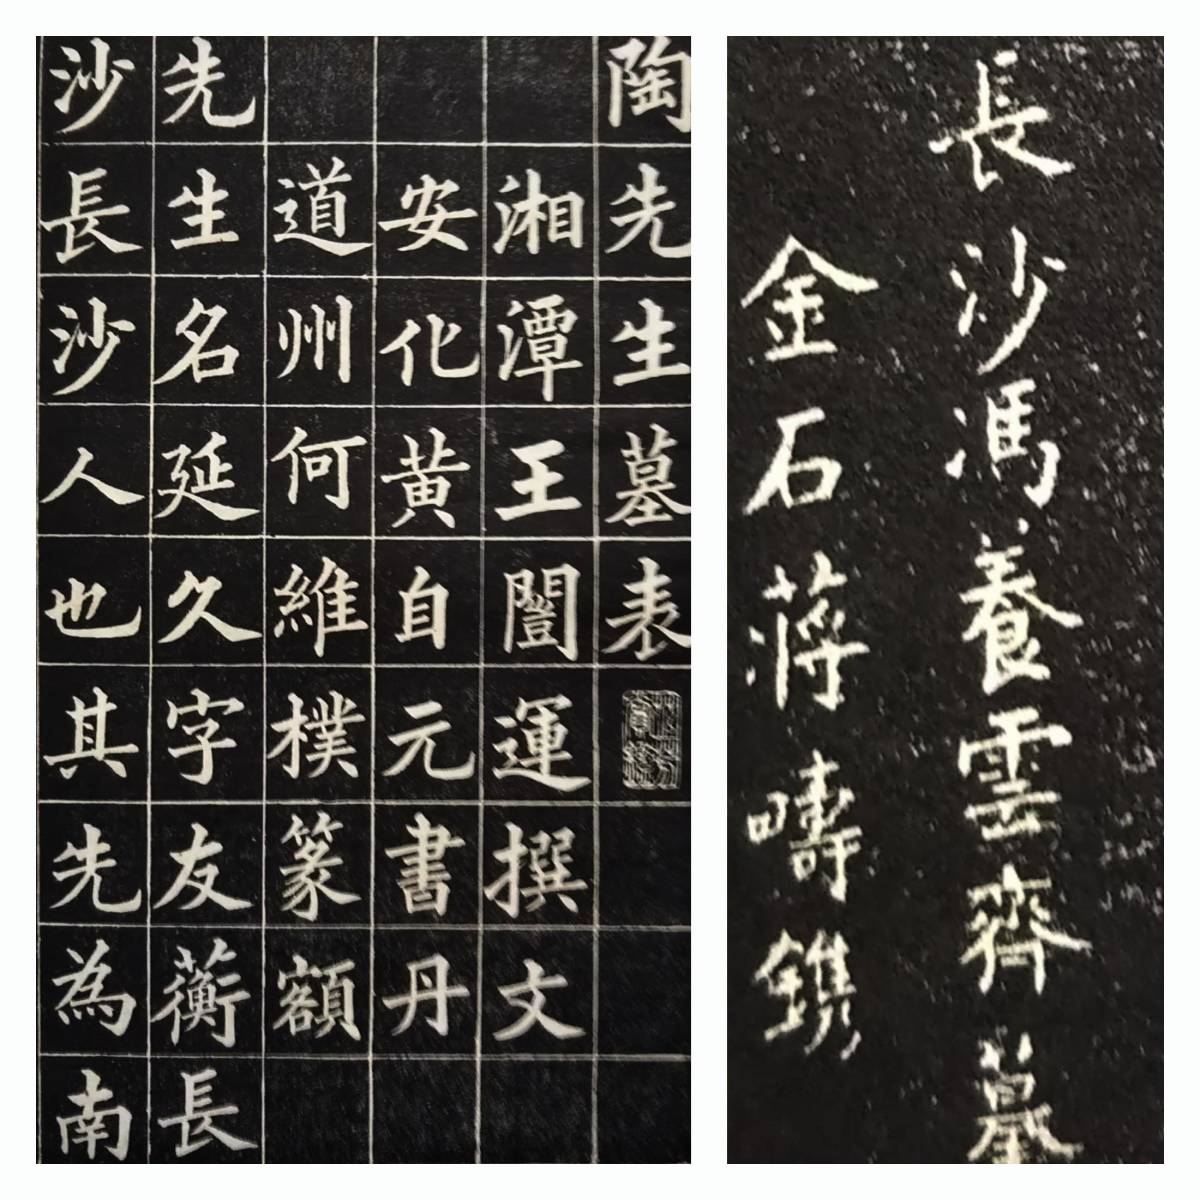 陶先生墓表
湘潭王闓運撰文
安化黄自元書丹
道州何維樸篆額
先生名延久字友蘅長
沙長沙人也其先為南
長沙馮養雲齋摹
金石蔣疇鐫